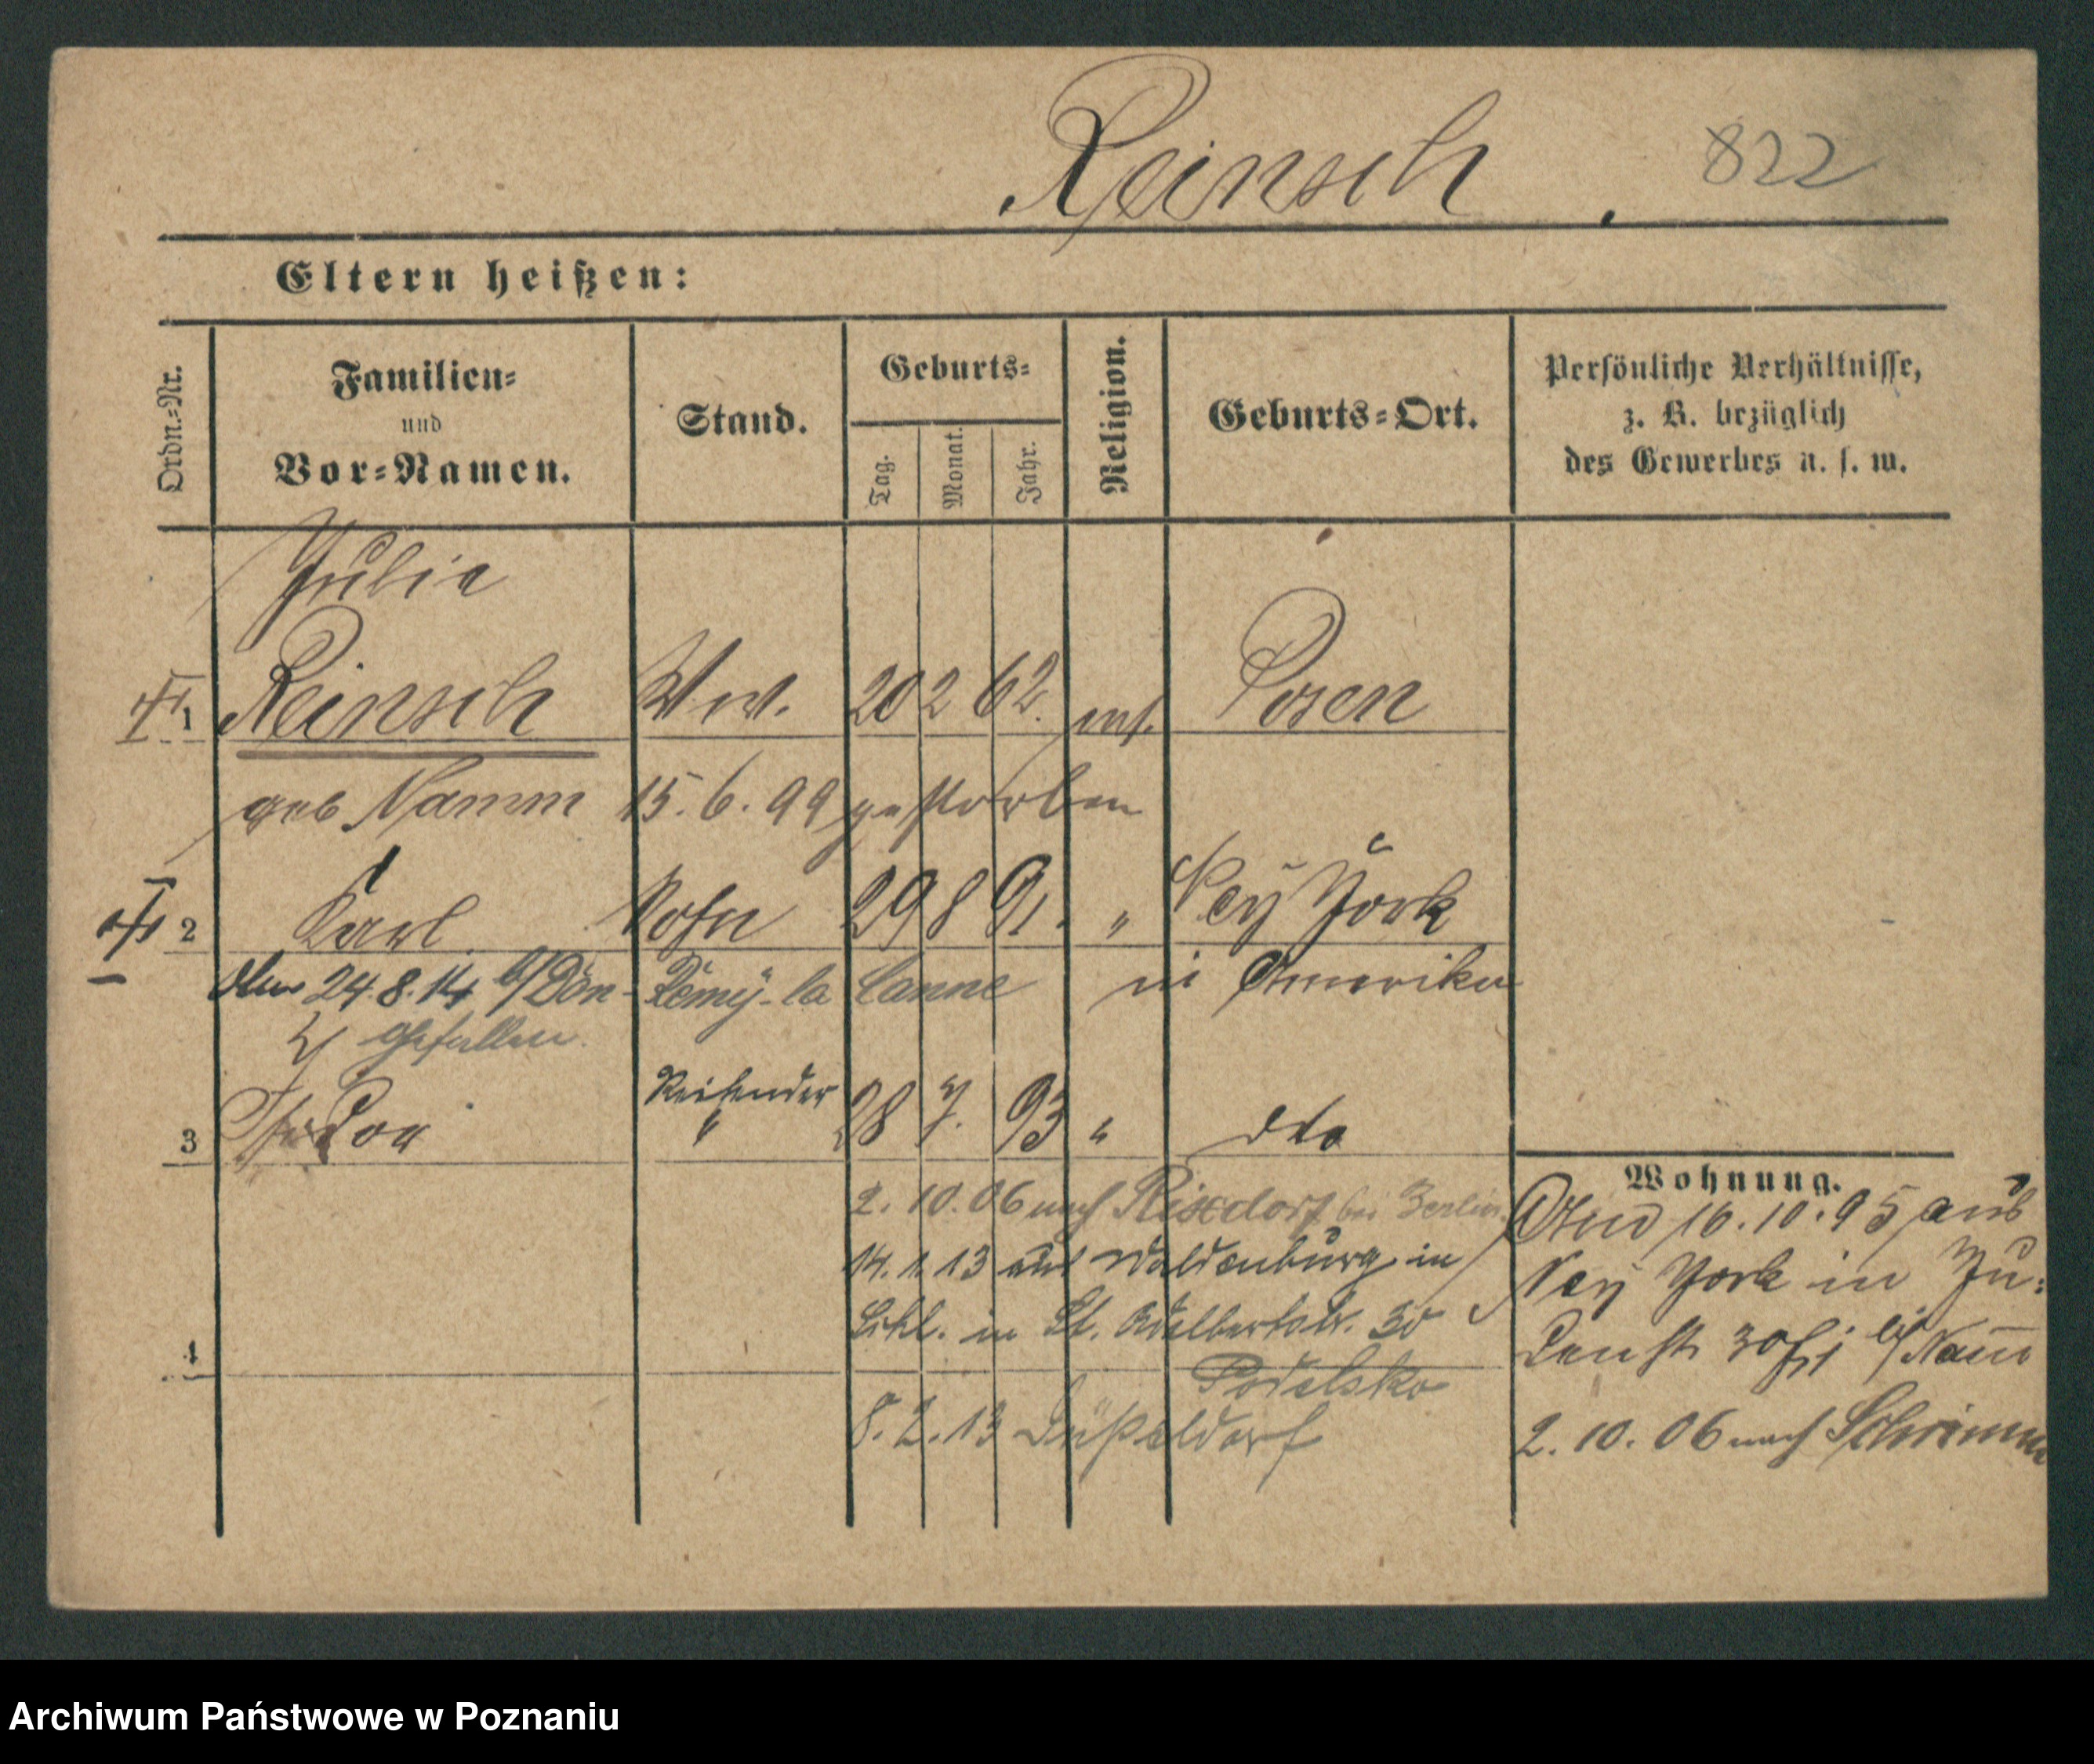 Reinsch. 822
Eltern heißen:
Ordn.=Nr.
Familien=
und
Vor=Namen.
Stand.
Geburts=
Tag.
Monat.
Jahr.
Religion.
Geburts=Ort.
Persönliche Verhältnisse,
z. B. bezüglich
des Gewerbes u. s. w.
Julie
1 Reinsch Ww. 20 2 62. Posen
geb Namm 15. 6. 99 gestorben
2 Karl Sohn 29 8 91. " Ney York
24.8.14 Rémÿ-la in Amerika
gefallen.
Reisender
3 " 28 7. 93 " dto
Wohnung.
2. 10. 06 nach Rixdorf bei Berlin
16.10.95 aus
14. 1. 13 aus Waldenburg in
Ney York in
Schl. in St. Adalbertstr. 30
4
Podelsko
8. 2. 13 Düsseldorf
2. 10. 06 nach Schrimm
Archiwum Państwowe w Poznaniu